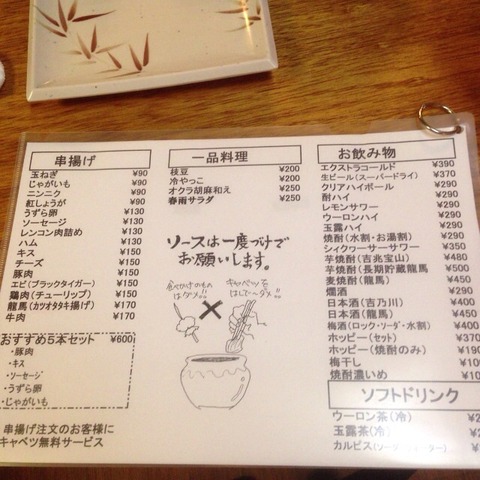 串揚げ
玉ねぎ ¥90
じゃがいも ¥90
ニンニク ¥90
紅しょうが ¥90
うずら卵 ¥130
ソーセージ ¥130
レンコン肉詰め ¥130
ハム ¥130
キス ¥150
チーズ ¥150
豚肉 ¥150
エビ(ブラックタイガー) ¥150
鶏肉(チューリップ) ¥150
龍馬(カツオタタキ揚げ) ¥170
牛肉 ¥170
おすすめ5本セット ¥600
・豚肉
・キス
・ソーセージ
・うずら卵
・じゃがいも
串揚げ注文のお客様に
キャベツ無料サービス
一品料理
枝豆 ¥200
冷やっこ ¥200
オクラ胡麻和え ¥250
春雨サラダ ¥250
ソースは一度づけで
お願いします。
食べかけのもの
はダメ!!
キャベツを
はしで〜ダメ!!
お飲み物
エクストラコールド ¥390
生ビール(スーパードライ) ¥370
クリアハイボール ¥290
酎ハイ ¥290
レモンサワー ¥290
ウーロンハイ ¥290
玉露ハイ ¥290
焼酎(水割・お湯割) ¥290
シィクヮーサーサワー ¥350
芋焼酎(吉兆宝山) ¥480
芋焼酎(長期貯蔵龍馬) ¥500
麦焼酎(龍馬) ¥450
燗酒 ¥290
日本酒(吉乃川) ¥400
日本酒(龍馬) ¥450
梅酒(ロック・ソーダ・水割) ¥400
ホッピー(セット) ¥370
ホッピー(焼酎のみ) ¥190
梅干し
焼酎濃いめ
ソフトドリンク
ウーロン茶(冷)
玉露茶(冷)
カルピス